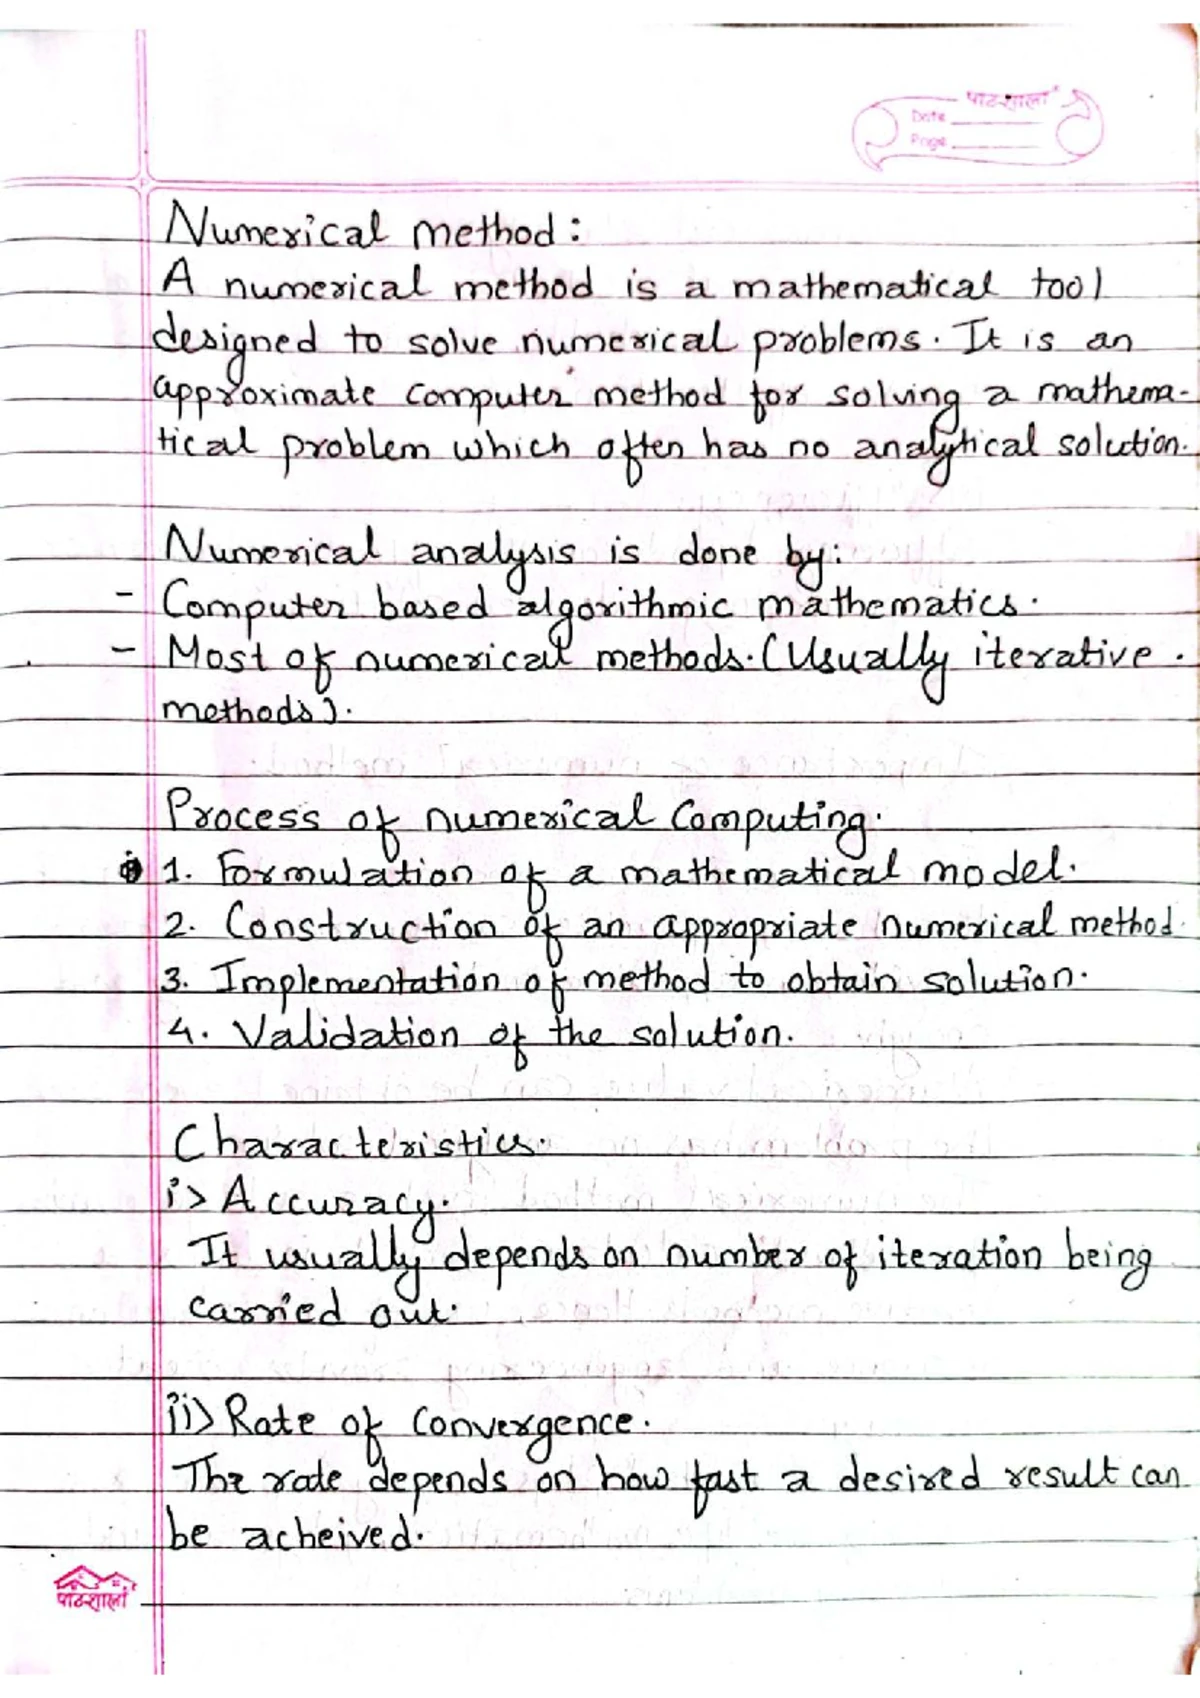 पाठशाला
Date
Page
Numerical method:
A numerical method is a mathematical tool
designed to solve numerical problems. It is an
approximate computer method for solving a mathema-
tical problem which often has no analytical solution.
Numerical analysis is done by:
- Computer based algorithmic mathematics.
- Most of numerical methods. (Usually iterative.
methods).
Process of numerical Computing.
1. Formulation of a mathematical model.
2. Construction of an appropriate numerical method.
3. Implementation of method to obtain solution.
4. Validation of the solution.
Characteristics.
i> Accuracy.
It usually depends on number of iteration being
carried out.
ii> Rate of Convergence.
The rate depends on how fast a desired result can
be acheived.
पाठशाला